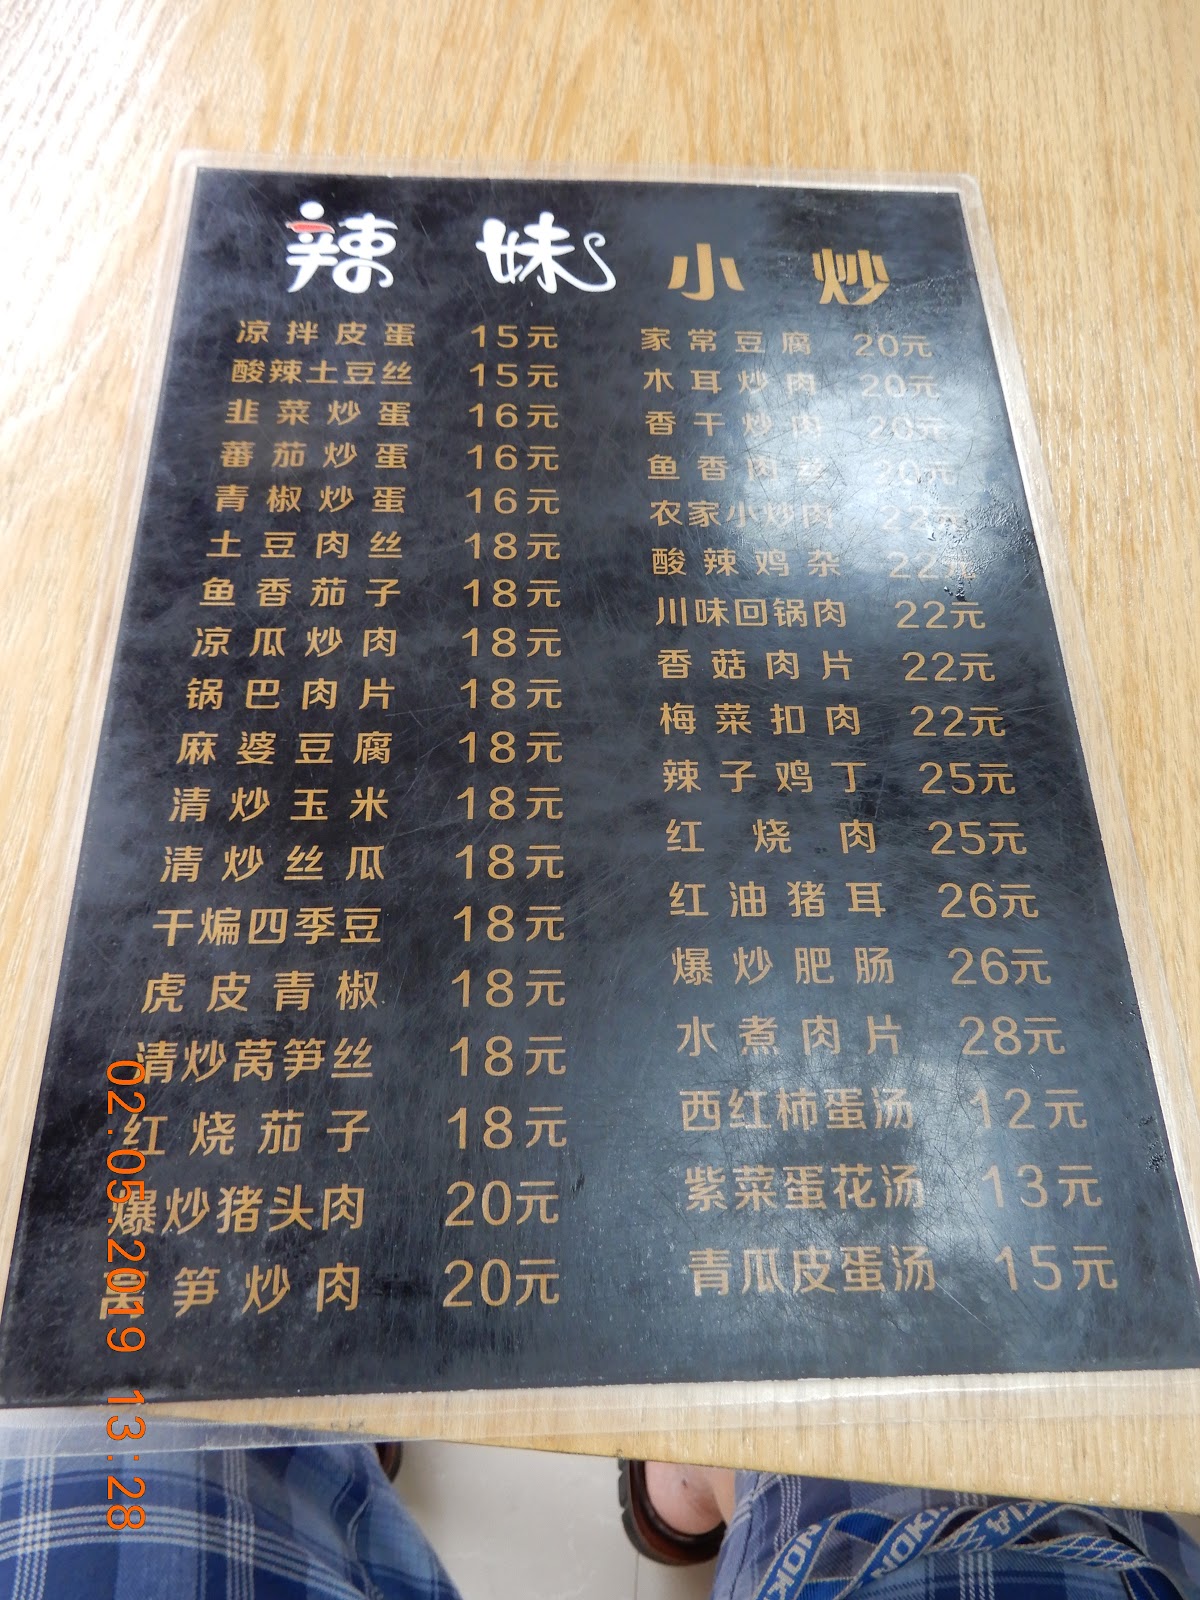 辣味小炒
凉拌皮蛋 15元
酸辣土豆丝 15元
韭菜炒蛋 16元
蕃茄炒蛋 16元
青椒炒蛋 16元
土豆肉丝 18元
鱼香茄子 18元
凉瓜炒肉 18元
锅巴肉片 18元
麻婆豆腐 18元
清炒玉米 18元
清炒丝瓜 18元
干煸四季豆 18元
虎皮青椒 18元
清炒莴笋丝 18元
红烧茄子 18元
爆炒猪头肉 20元
莴笋炒肉 20元
家常豆腐 20元
木耳炒肉 20元
香干炒肉 20元
鱼香肉丝 20元
农家小炒肉 22元
酸辣鸡杂 22元
川味回锅肉 22元
香菇肉片 22元
梅菜扣肉 22元
辣子鸡丁 25元
红烧肉 25元
红油猪耳 26元
爆炒肥肠 26元
水煮肉片 28元
西红柿蛋汤 12元
紫菜蛋花汤 13元
青瓜皮蛋汤 15元
02.05.2019 13:28
NOKIA